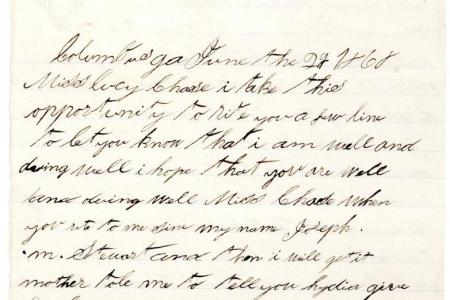 Columbus ga June the 28 1868
Miss lucy Chase i take this
opportunity to rite you a few line
to let you know that i am well and
doing well i hope that you are well
and doing well Miss Chase when
you rite to me sine my name Joseph.
m. Stewart and then i will get it
mother tole me to tell you lydia give